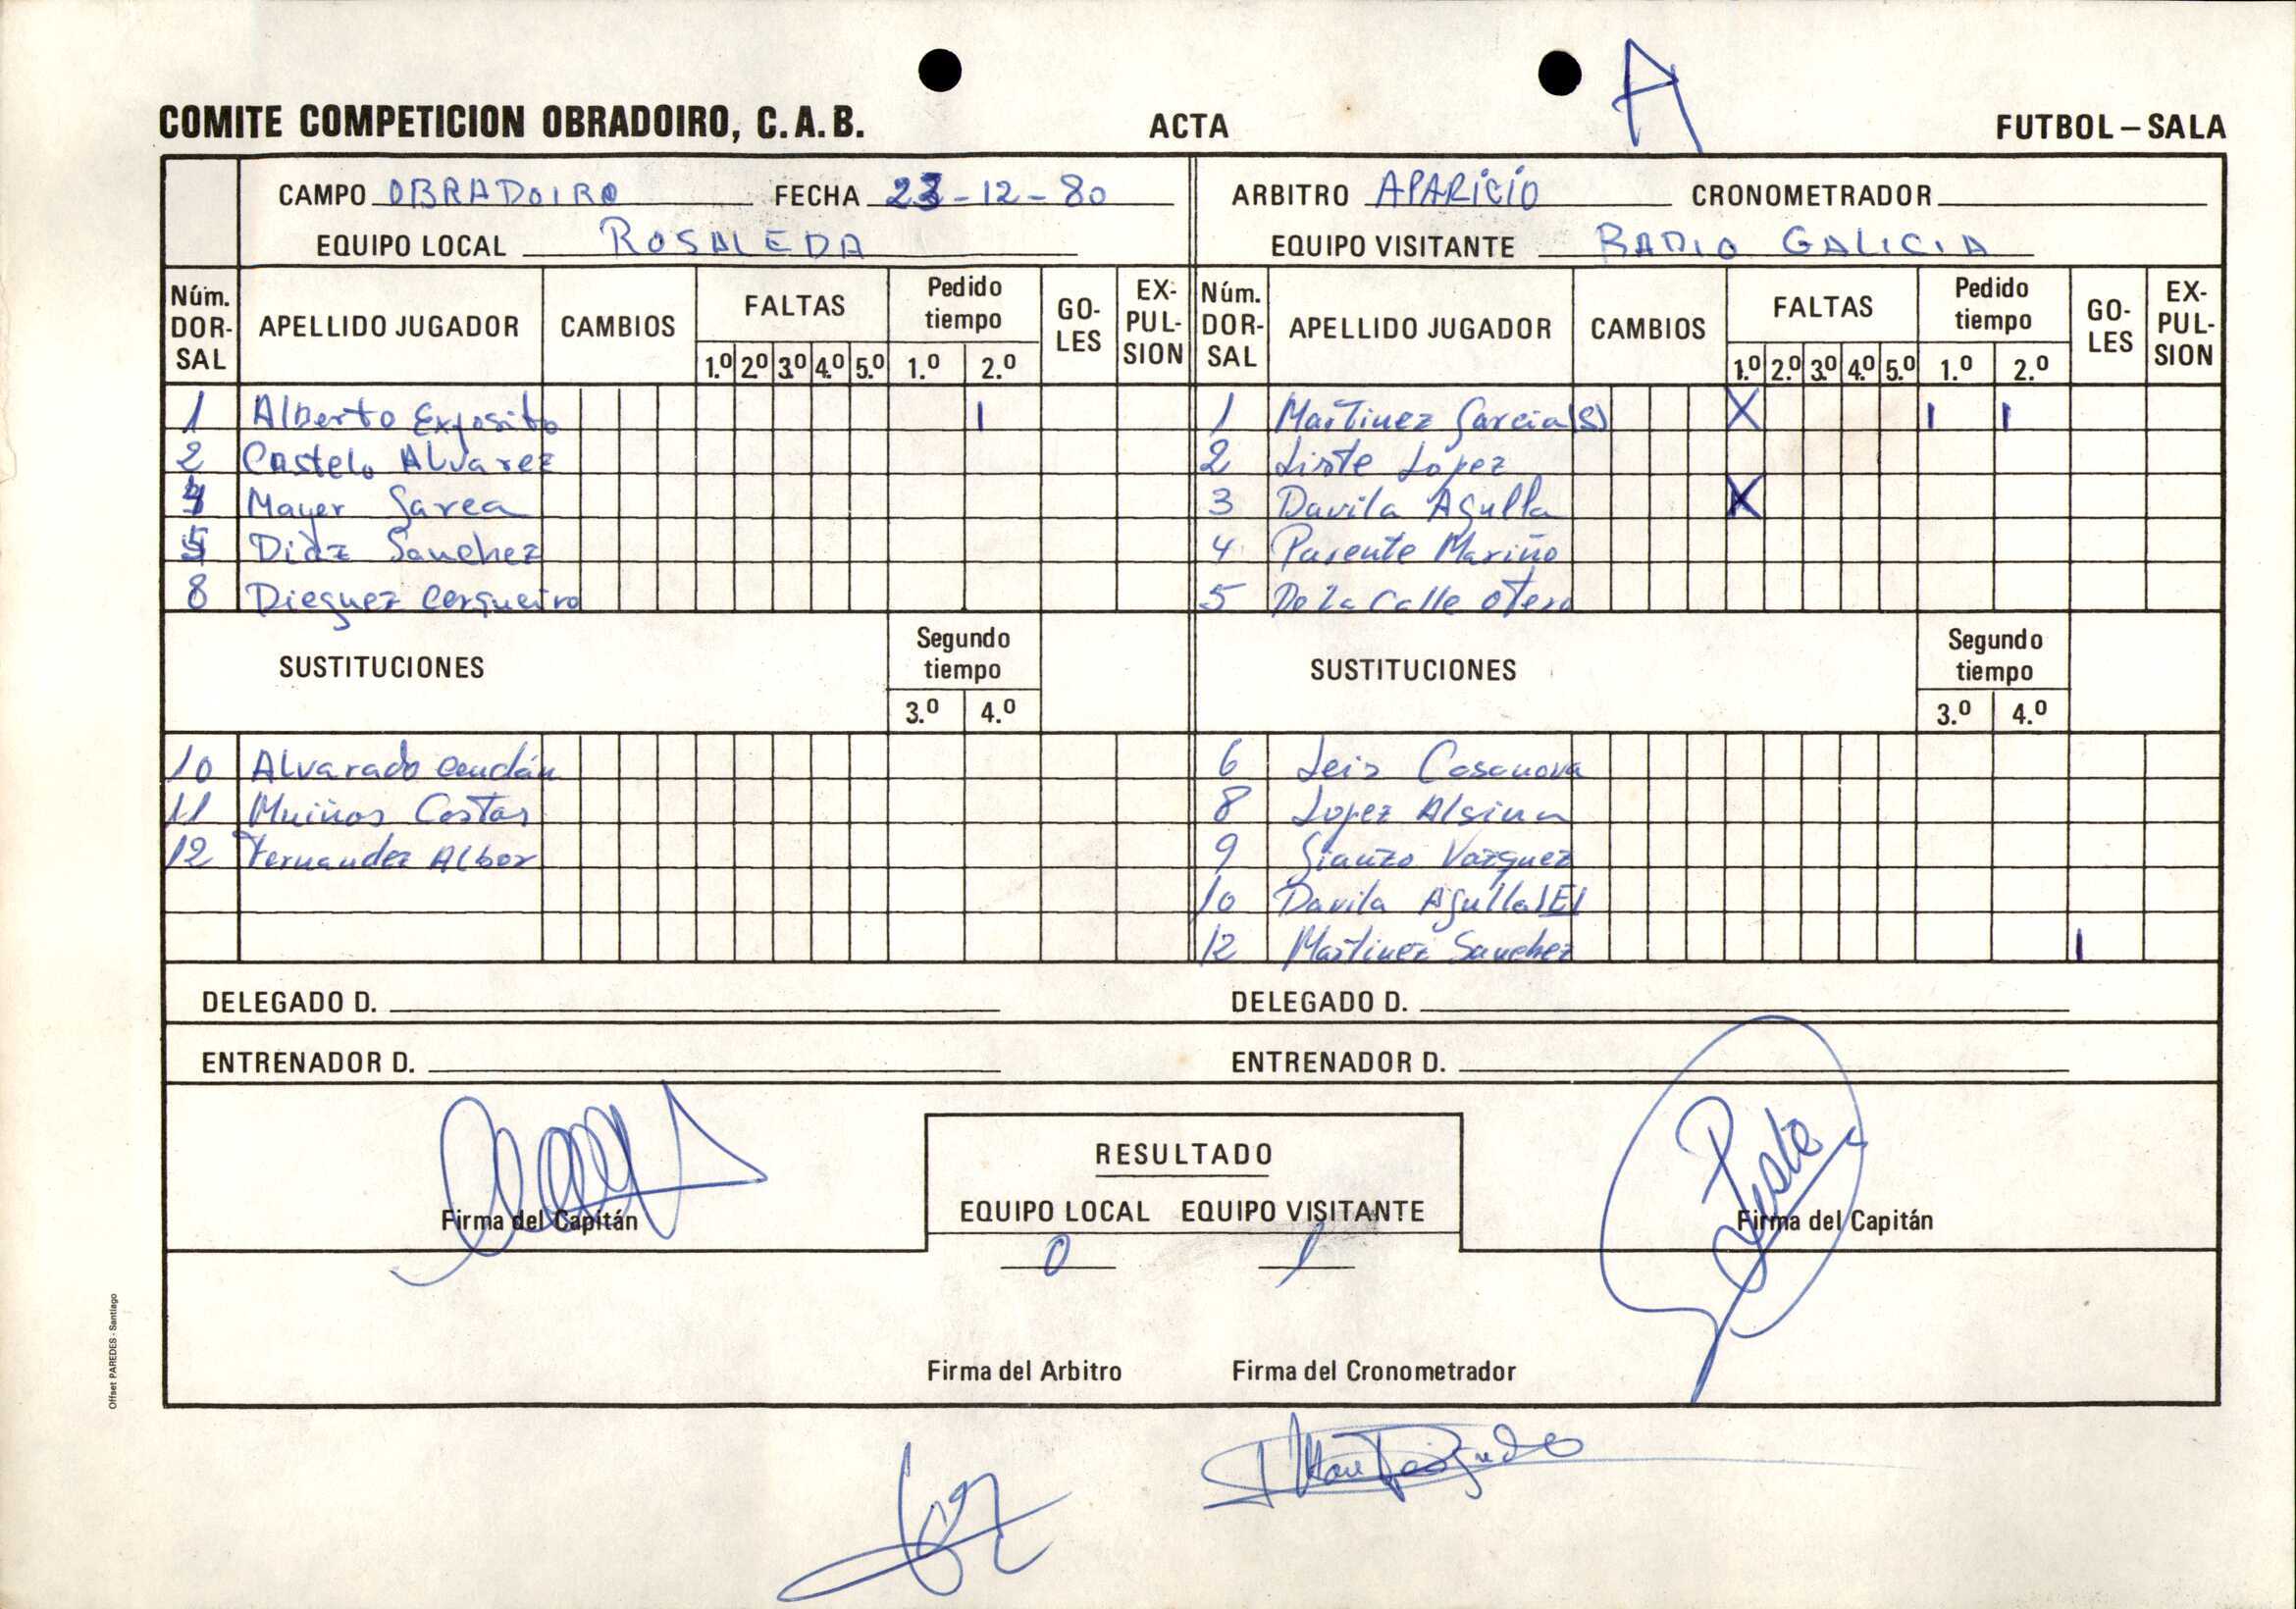 A
COMITE COMPETICION OBRADOIRO, C.A.B. ACTA FUTBOL-SALA
CAMPO OBRADOIRO FECHA 23-12-80 ARBITRO APARICIO CRONOMETRADOR
EQUIPO LOCAL ROSALEDA EQUIPO VISITANTE RADIO GALICIA
Núm. DOR-SAL APELLIDO JUGADOR CAMBIOS FALTAS 1.º 2.º 3.º 4.º 5.º Pedido tiempo 1.º 2.º GO-LES EX-PUL-SION Núm. DOR-SAL APELLIDO JUGADOR CAMBIOS FALTAS 1.º 2.º 3.º 4.º 5.º Pedido tiempo 1.º 2.º GO-LES EX-PUL-SION
1 Alberto Exposito | 1 Martinez Garcia (S) X | |
2 Castelo Alvarez 2 Liste Lopez
4 Mayer Garea 3 Davila Agulla X
5 Diaz Sanchez 4 Parente Mariño
8 Dieguez Cerqueiro 5 De La Calle Otero
SUSTITUCIONES Segundo tiempo 3.º 4.º SUSTITUCIONES Segundo tiempo 3.º 4.º
10 Alvarado Cendán 6 Leis Casanova
11 Muiños Costas 8 Lopez Alsina
12 Fernandez Albor 9 Gianzo Vazquez
10 Davila Agulla (E)
12 Martinez Sanchez |
DELEGADO D. DELEGADO D.
ENTRENADOR D. ENTRENADOR D.
RESULTADO
EQUIPO LOCAL EQUIPO VISITANTE
0 1
Firma del Capitán Firma del Capitán
Firma del Arbitro Firma del Cronometrador
Offset PAREDES - Santiago